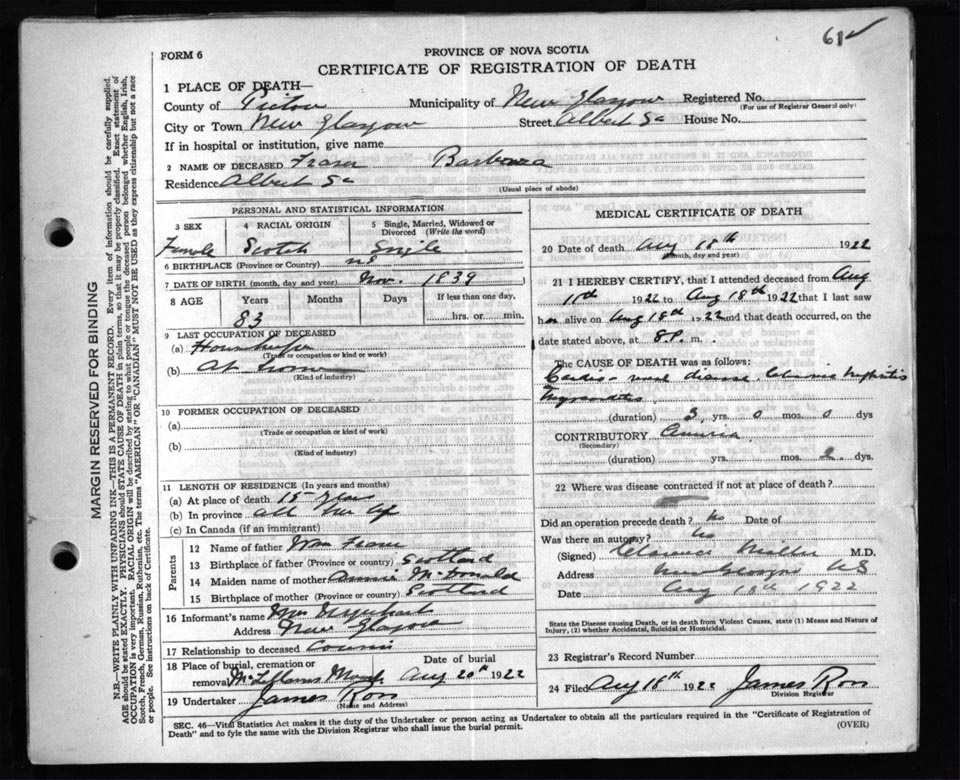 61✓
FORM 6
PROVINCE OF NOVA SCOTIA
CERTIFICATE OF REGISTRATION OF DEATH
1 PLACE OF DEATH—
County of Pictou Municipality of New Glasgow Registered No.
(For use of Registrar General only)
City or Town New Glasgow Street Albert St House No.
If in hospital or institution, give name
2 NAME OF DECEASED Fraser Barbara
Residence Albert St
(Usual place of abode)
PERSONAL AND STATISTICAL INFORMATION
3 SEX 4 RACIAL ORIGIN 5 Single, Married, Widowed or Divorced (Write the word)
Female Scotch Single
6 BIRTHPLACE (Province or Country) NS
7 DATE OF BIRTH (month, day and year) Nov. 1839
8 AGE Years Months Days If less than one day,
83 hrs. or min.
9 LAST OCCUPATION OF DECEASED
(a) Housekeeper
(Trade or occupation or kind or work)
(b) At home
(Kind of industry)
10 FORMER OCCUPATION OF DECEASED
(a)
(Trade or occupation or kind of work)
(b)
(Kind of industry)
11 LENGTH OF RESIDENCE (In years and months)
(a) At place of death 15 years
(b) In province all her life
(c) In Canada (if an immigrant)
Parents
12 Name of father Wm Fraser
13 Birthplace of father (Province or country) Scotland
14 Maiden name of mother Annie McDonald
15 Birthplace of mother (Province or country) Scotland
16 Informant's name Mrs Urquhart
Address New Glasgow
17 Relationship to deceased cousin
18 Place of burial, cremation or removal McLellans Date of burial Aug 20th 1922
19 Undertaker James Ross
(Name and Address)
MEDICAL CERTIFICATE OF DEATH
20 Date of death Aug 18th 1922
(Month, day and year)
21 I HEREBY CERTIFY, that I attended deceased from Aug
11th 1922 to Aug 18th 1922 that I last saw
her alive on Aug 18th 1922 and that death occurred, on the
date stated above, at 8 P. m.
The CAUSE OF DEATH was as follows:
Cardio disease. Chronic Nephritis
Myocarditis
(duration) 3 yrs. 0 mos. 0 dys
CONTRIBUTORY
(Secondary)
(duration) yrs. mos. dys.
22 Where was disease contracted if not at place of death?
Did an operation precede death? No Date of
Was there an autopsy? No
(Signed) Clarence Miller M.D.
Address New Glasgow NS
Date Aug 18th 1922
State the Disease causing Death, or in death from Violent Causes, state (1) Means and Nature of
Injury, (2) whether Accidental, Suicidal or Homicidal.
23 Registrar's Record Number
24 Filed Aug 18th 1922 James Ross
Division Registrar
SEC. 46—Vital Statistics Act makes it the duty of the Undertaker or person acting as Undertaker to obtain all the particulars required in the "Certificate of Registration of
Death" and to fyle the same with the Division Registrar who shall issue the burial permit.
(OVER)
MARGIN RESERVED FOR BINDING
N.B.—WRITE PLAINLY WITH UNFADING INK—THIS IS A PERMANENT RECORD. Every item of information should be carefully supplied.
AGE should be stated EXACTLY. PHYSICIANS should STATE CAUSE OF DEATH in plain terms, so that it may be properly classified. Exact statement of
OCCUPATION is very important. RACIAL ORIGIN will be described by stating to what people or tongue the deceased person belonged whether English, Irish,
Scotch, French, German, Russian, Ruthenian, etc. The terms "AMERICAN" or "CANADIAN" MUST NOT BE USED as they express citizenship but not a race
or people. See instructions on back of Certificate.